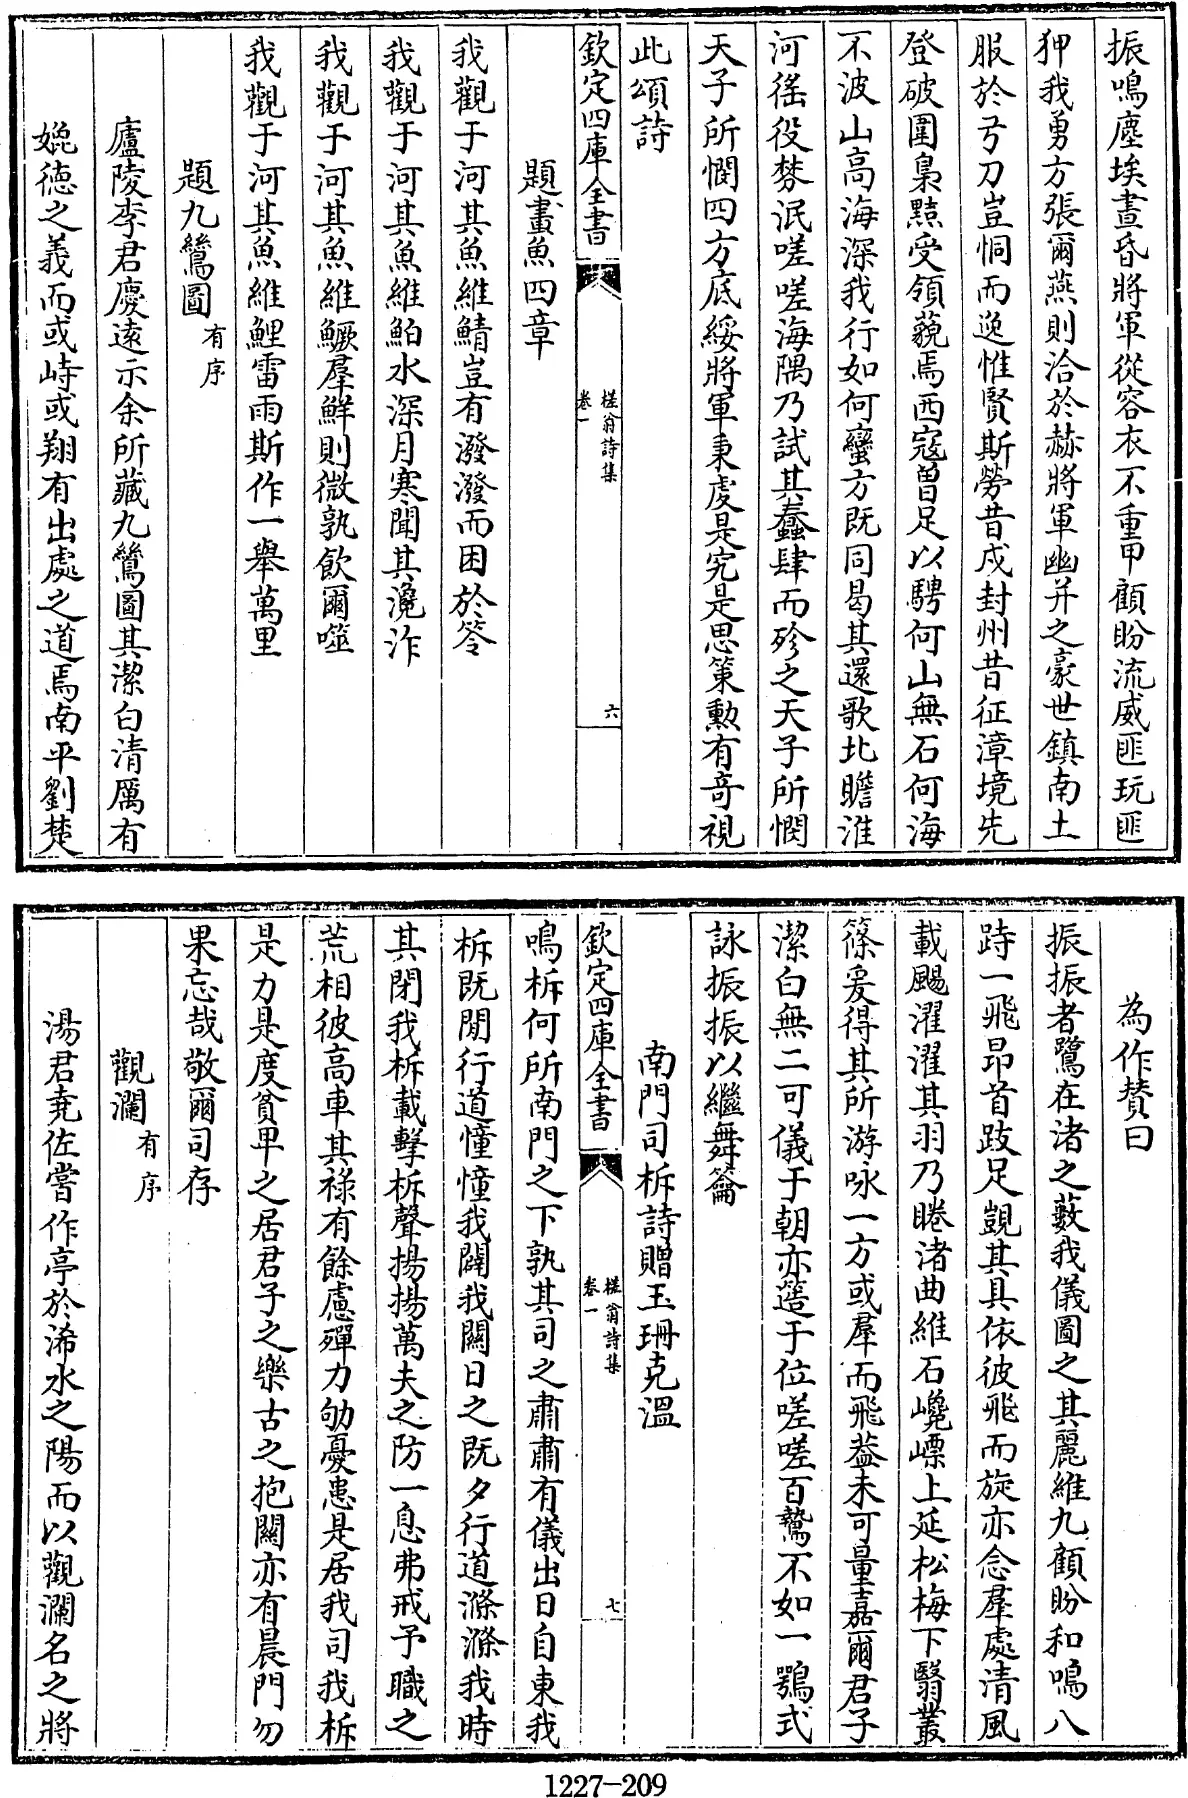 振鳴塵埃晝昏將軍從容衣不重甲顧盼流威匪玩匪
狎我勇方張爾燕則洽於赫將軍幽并之豪世鎮南土
服於弓刀豈恫而逸惟賢斯勞昔戍封州昔征漳境先
登破圍梟㸃受領藐焉西寇曽足以騁何山無石何海
不波山髙海深我行如何蠻方既同曷其還歌北瞻淮
河徭役棼泯嗟嗟海隅乃試其蠢肆而殄之天子所憫
天子所憫四方底綏將軍秉䖍是究是思策勲有竒視
此頌詩
欽定四庫全書
槎翁詩集
卷一
六
題畫魚四章
我觀于河其魚維鯖豈有潑潑而困於笭
我觀于河其魚維鮊水深月寒聞其㲯泎
我觀于河其魚維鱖羣鮮則微孰飲爾噬
我觀于河其魚維鯉雷雨斯作一舉萬里
題九鷺圖有序
廬陵李君慶逺示余所藏九鷺圖其潔白清厲有
媲徳之義而或峙或翔有出處之道焉南平劉楚
為作賛曰
振振者鷺在渚之藪我儀圖之其麗維九顧盼和鳴八
跱一飛昂首跂足覬其具依彼飛而旋亦念羣處清風
載颺濯濯其羽乃睠渚曲維石巉嵲上延松梅下翳叢
篠爰得其所游咏一方或羣而飛葢未可量嘉爾君子
潔白無二可儀于朝亦簉于位嗟嗟百鷙不如一鶚式
詠振振以繼舞籥
南門司柝詩贈玉珊克温
欽定四庫全書
槎翁詩集
卷一
七
鳴柝何所南門之下孰其司之肅肅有儀出日自東我
柝既閒行道憧憧我闢我闗日之既夕行道滌滌我時
其閉我柝載擊柝聲揚揚萬夫之防一息弗戒予職之
荒相彼髙車其祿有餘慮殫力劬憂患是居我司我柝
是力是度貧甲之居君子之樂古之抱闗亦有晨門勿
果忘哉敬爾司存
觀瀾有序
湯君堯佐嘗作亭於浠水之陽而以觀瀾名之將
1227-209